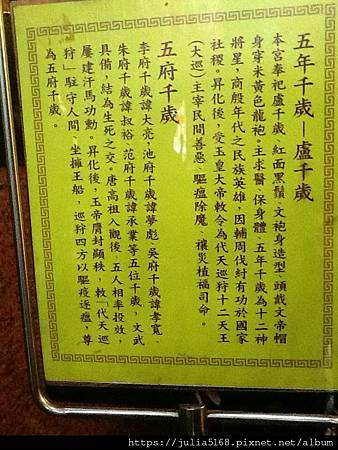 五年千歲－盧千歲
本宮奉祀盧千歲，紅面黑鬚，文袍身造型，頭戴文帝帽
身穿米黃色龍袍。主求醫、保身體、五年千歲為十二神
將星，商殷年代之民族英雄，因輔周伐紂有功於國家
社稷。昇化後，受玉皇大帝敕令為代天巡狩十二天王
(大巡)主宰民間善惡、驅瘟除魔、禳災植福司命。
五府千歲
李府千歲諱大亮，池府千歲諱夢彪、吳府千歲諱孝寬、
朱府千歲諱叔裕、范府千歲諱承業等五位千歲，文武
具備，結為生死之交。唐高祖入觀後、五人相率投效，
屢建汗馬功勳。昇化後，玉帝肩封顯秩，敕「代天巡
狩」駐守人間、坐擁王船，巡狩四方以驅疫逐瘟，尊
為五府千歲。
https://julia5168.pixnet.net/album